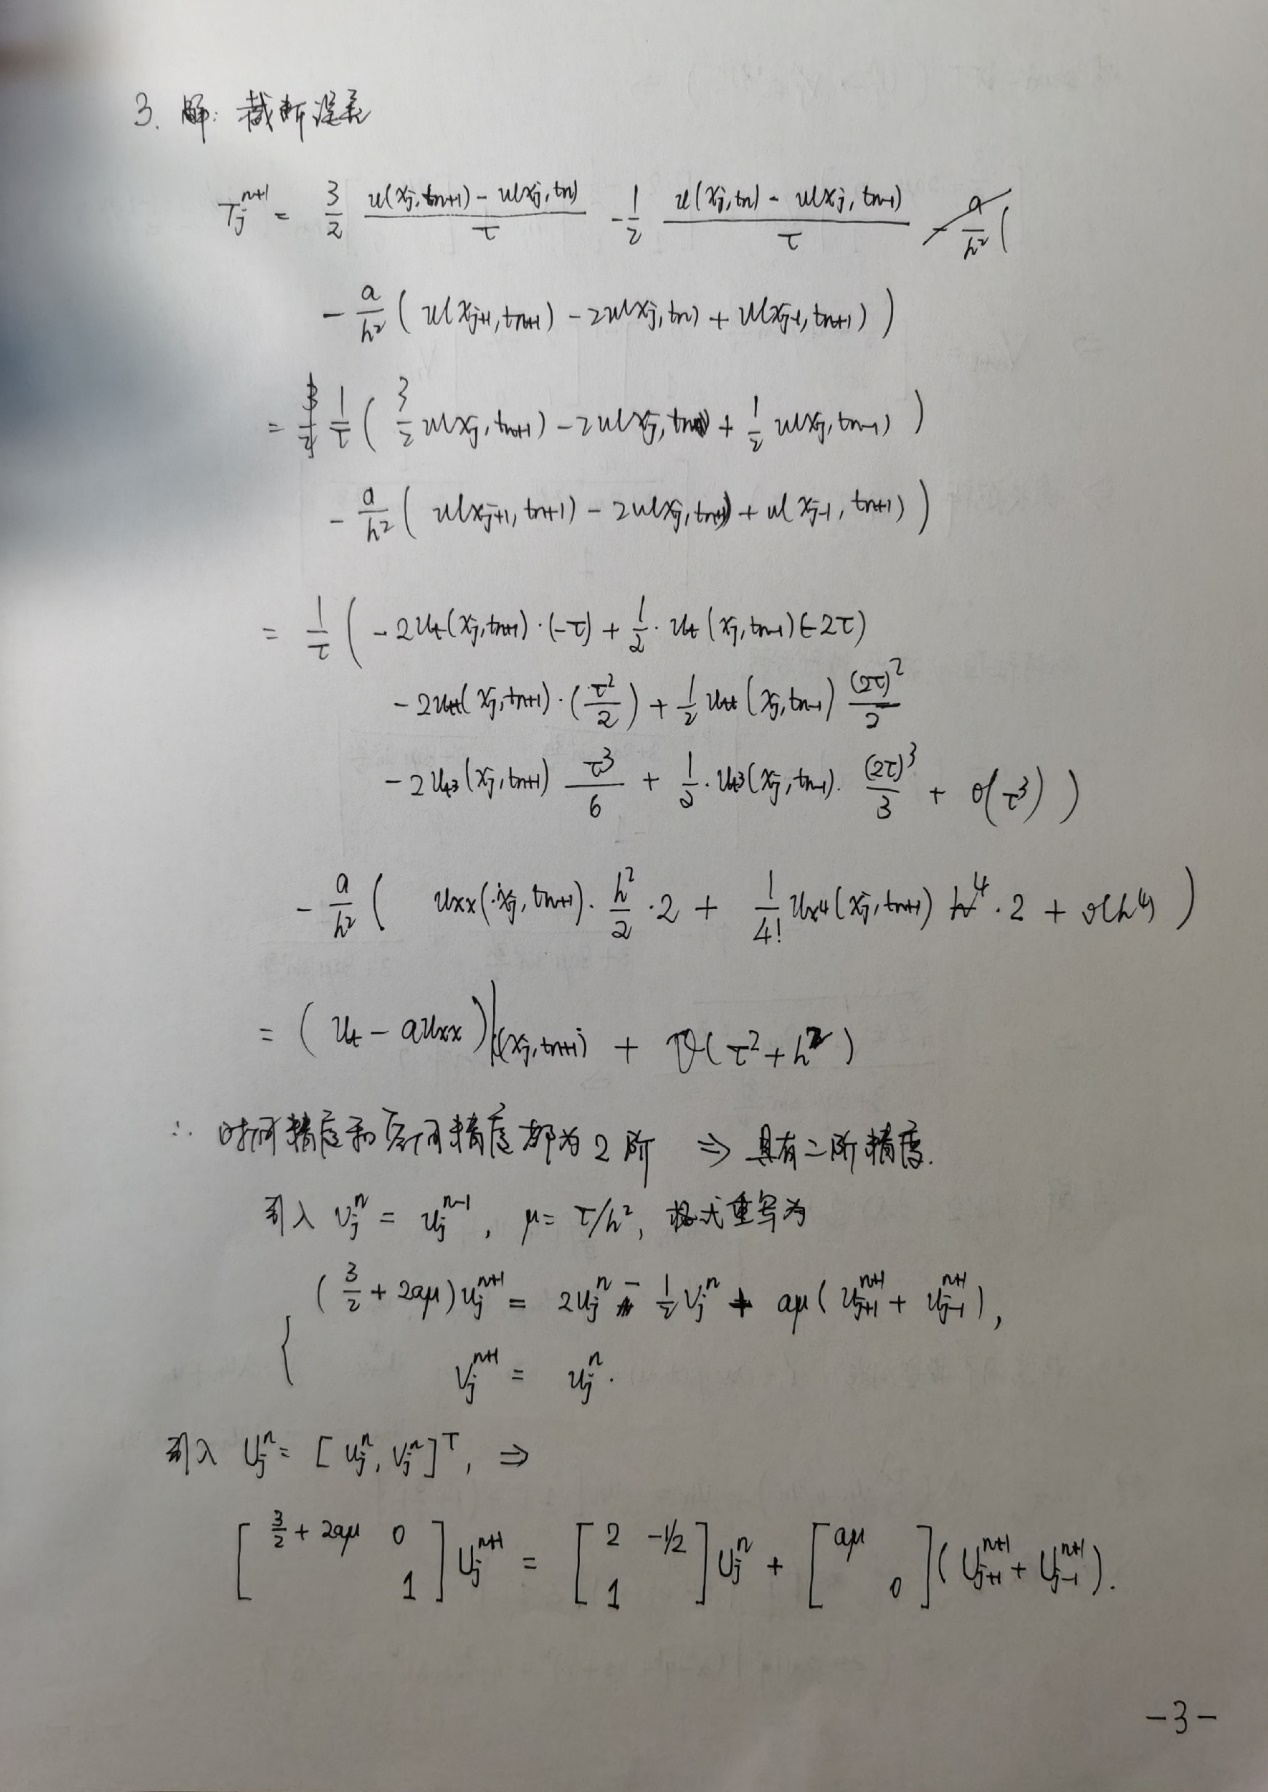 3. 解: 截断误差
T_j^{n+1} = 3/2 (u(x_j,t_{n+1}) - u(x_j,t_n))/τ - 1/2 (u(x_j,t_n) - u(x_j,t_{n-1}))/τ
- a/h² ( u(x_{j+1},t_{n+1}) - 2u(x_j,t_n) + u(x_{j-1},t_{n+1}) )
= 1/τ ( 3/2 u(x_j,t_{n+1}) - 2u(x_j,t_n) + 1/2 u(x_j,t_{n-1}) )
- a/h² ( u(x_{j+1},t_{n+1}) - 2u(x_j,t_{n+1}) + u(x_{j-1},t_{n+1}) )
= 1/τ ( -2u_t(x_j,t_{n+1})·(-τ) + 1/2·u_t(x_j,t_{n-1})(-2τ)
-2u_{tt}(x_j,t_{n+1})·(τ²/2) + 1/2 u_{tt}(x_j,t_{n-1}) (2τ)²/2
-2u_{t3}(x_j,t_{n+1}) τ³/6 + 1/2·u_{t3}(x_j,t_{n-1})· (2τ)³/3 + o(τ³) )
- a/h² ( u_{xx}(x_j,t_{n+1})· h²/2 ·2 + 1/4! u_{x4}(x_j,t_{n+1}) h⁴·2 + o(h⁴) )
= (u_t - au_{xx})|_{(x_j,t_{n+1})} + O(τ²+h²)
∴ 时间精度和空间精度都为2阶 ⇒ 具有二阶精度.
引入 v_j^n = u_j^{n-1}, μ = τ/h², 格式重写为
{ (3/2 + 2aμ)u_j^{n+1} = 2u_j^n - 1/2 v_j^n + aμ( u_{j+1}^{n+1} + u_{j-1}^{n+1} ),
v_j^{n+1} = u_j^n.
引入 U_j^n = [u_j^n, v_j^n]^T, ⇒
[3/2 + 2aμ 0; 1] U_j^{n+1} = [2 -1/2; 1] U_j^n + [aμ; 0] ( U_{j+1}^{n+1} + U_{j-1}^{n+1} ).
-3-